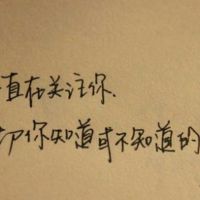 直在关注你.
切你知道或不知道的